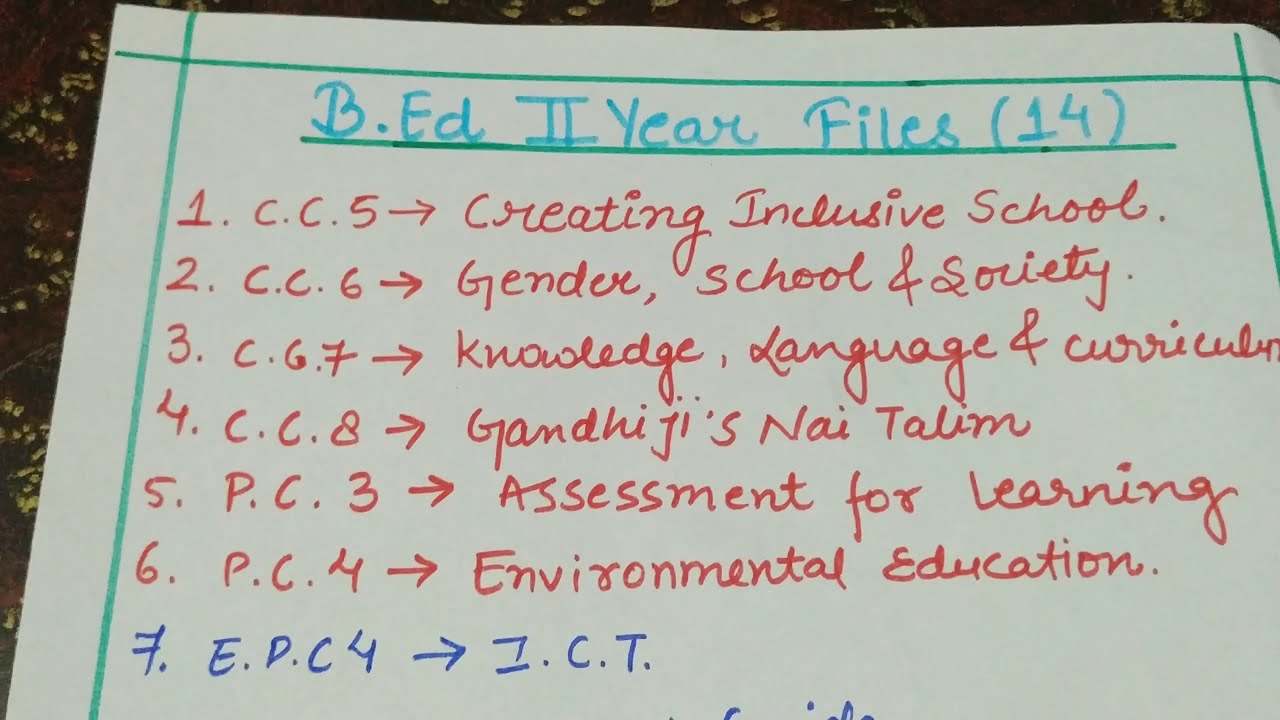 B.Ed II Year Files (14)
1. C.C.5 → Creating Inclusive School.
2. C.C.6 → Gender, School & Society.
3. C.G.7 → Knowledge, Language & curriculum
4. C.C.8 → Gandhiji's Nai Talim
5. P.C.3 → Assessment for Learning
6. P.C.4 → Environmental Education.
7. E.P.C4 → I.C.T.